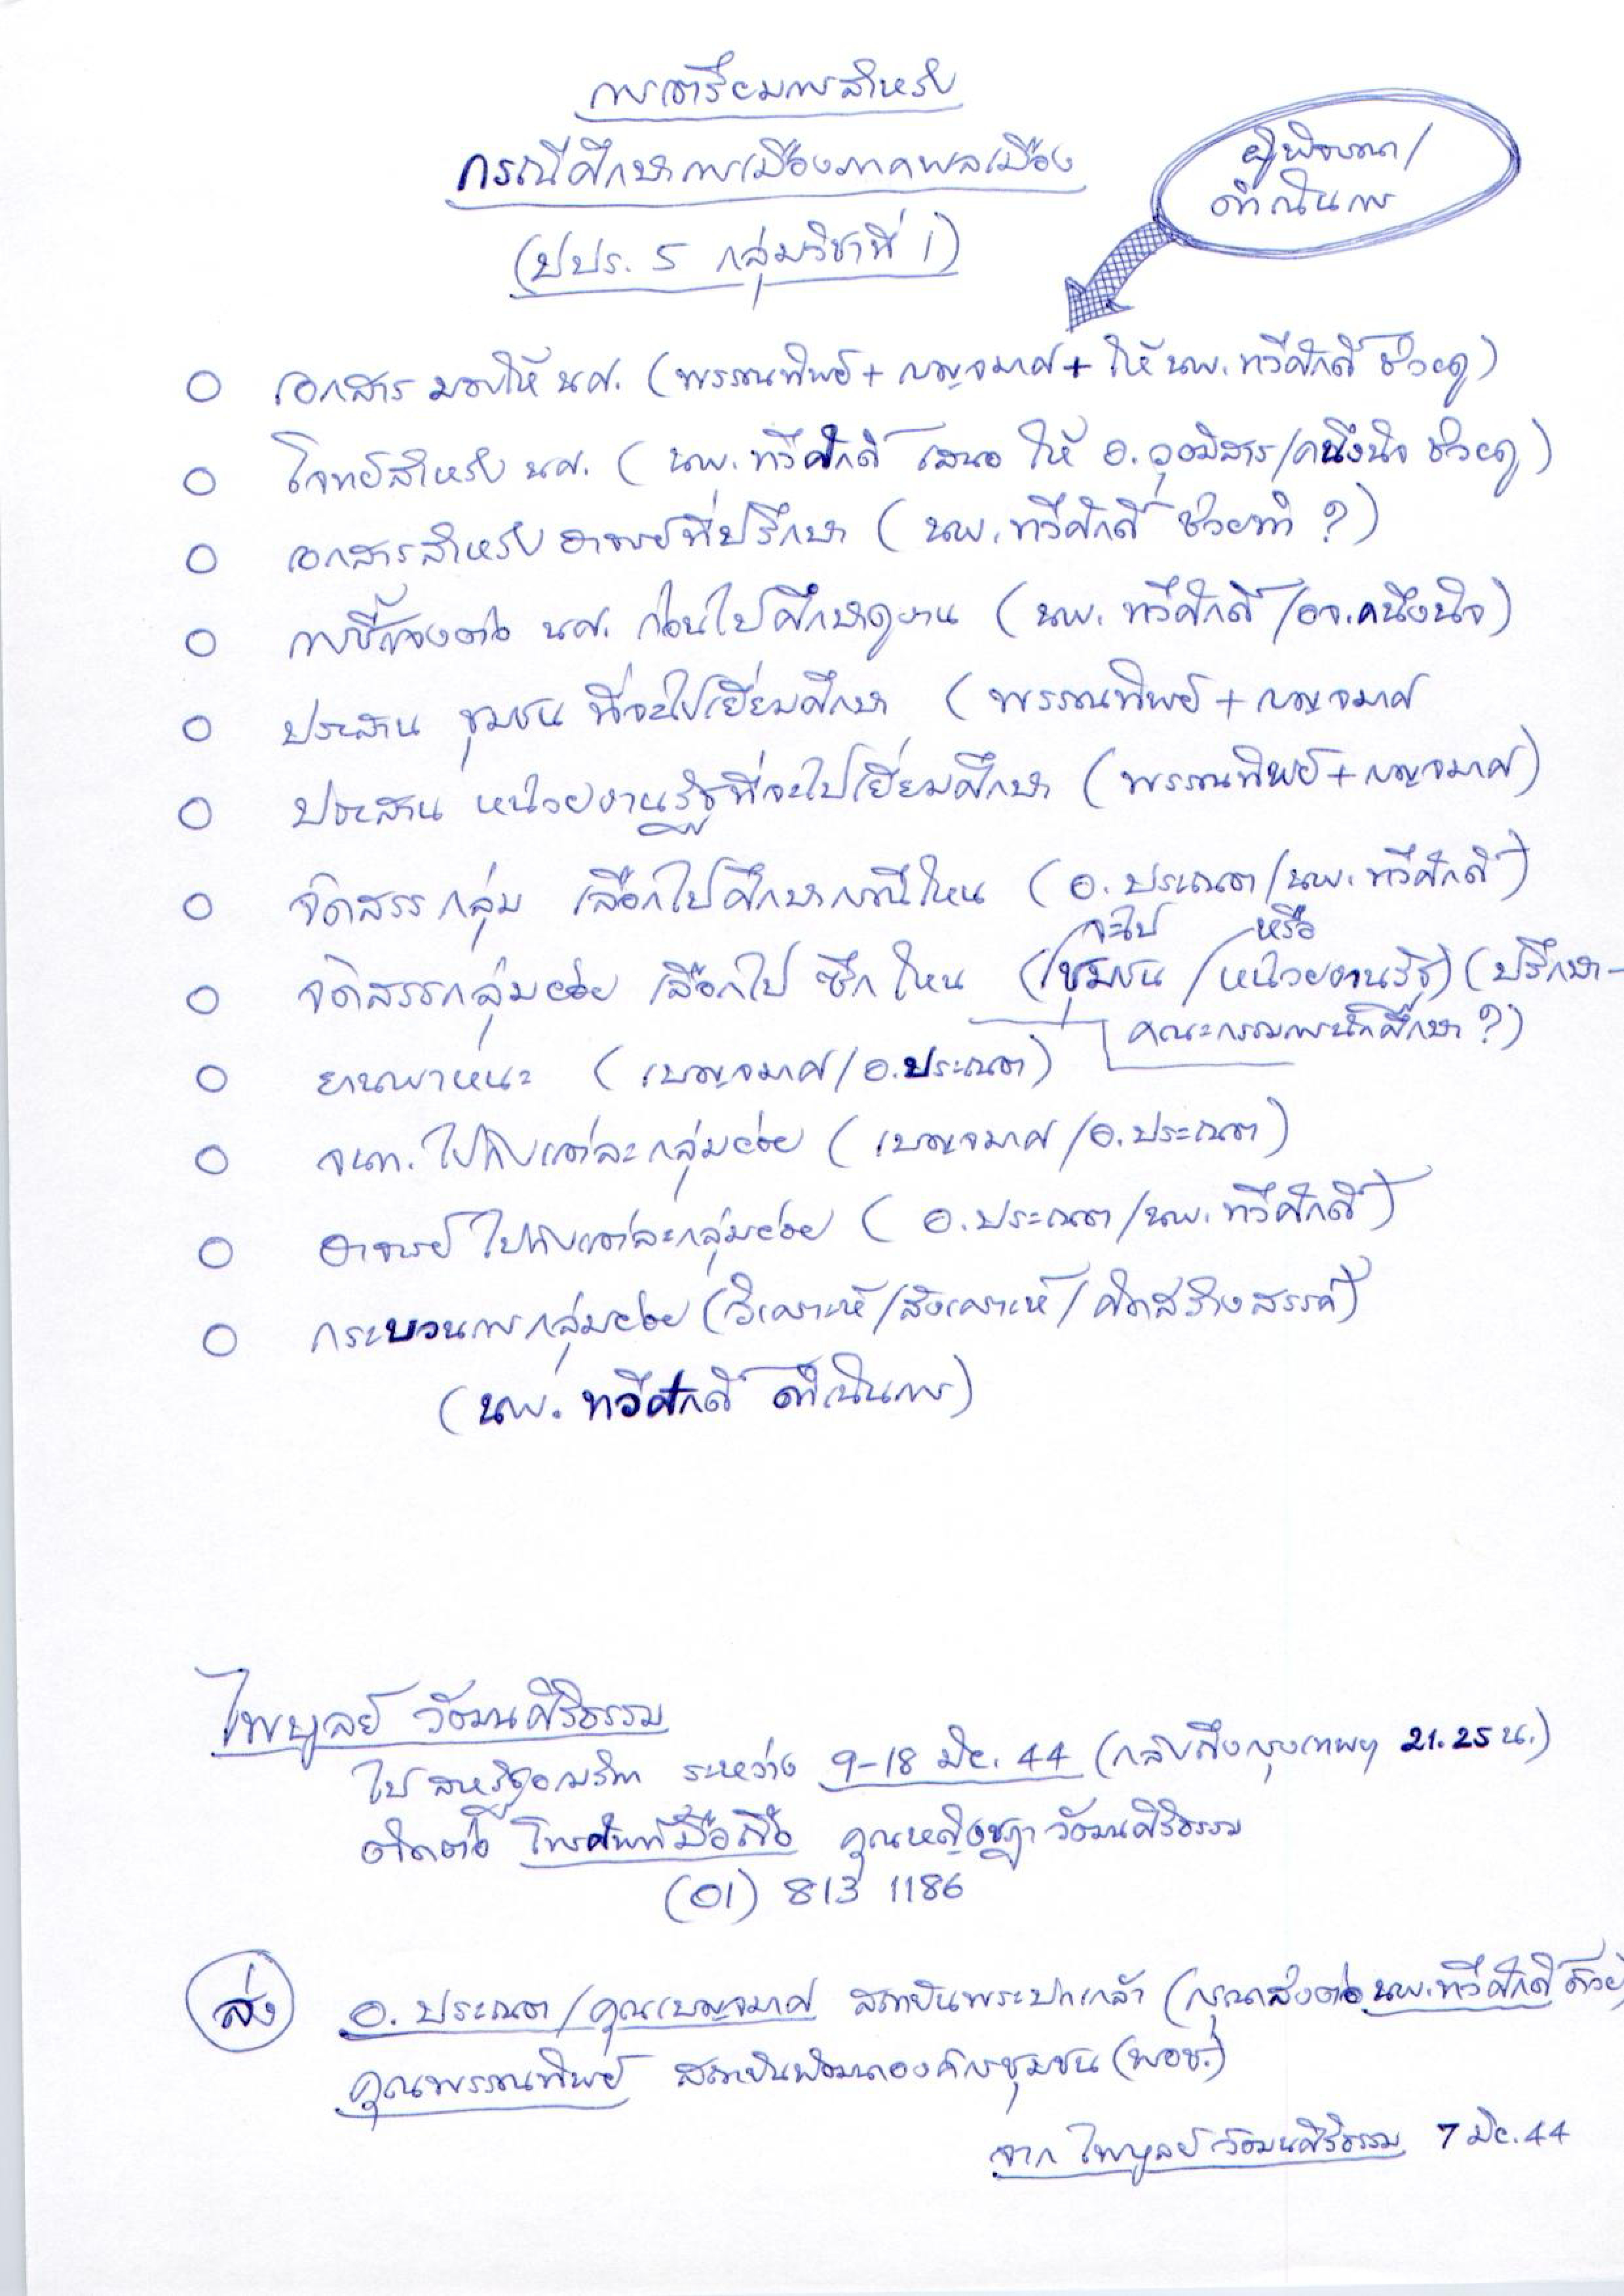 การเตรียมการสำหรับ
กรณีศึกษาการเมืองภาคพลเมือง
(ปปร. 5 กลุ่มวิชาที่ 1)
ผู้พิจารณา/
ดำเนินการ
เอกสาร มอบให้ นศ. (พรรณทิพย์ + เบญจมาศ + ให้ นพ. ทวีศักดิ์ ช่วยดู)
โจทย์สำหรับ นศ. (นพ. ทวีศักดิ์ เสนอ ให้ อ. วุฒิสาร/คนึงนิจ ช่วยดู)
เอกสารสำหรับ อาจารย์ที่ปรึกษา (นพ. ทวีศักดิ์ ช่วยทำ ?)
การชี้แจงต่อ นศ. ก่อนไปศึกษาดูงาน (นพ. ทวีศักดิ์/อจ. คนึงนิจ)
ประสาน ชุมชน ที่จะไปเยี่ยมศึกษา (พรรณทิพย์ + เบญจมาศ
ประสาน หน่วยงานรัฐที่จะไปเยี่ยมศึกษา (พรรณทิพย์ + เบญจมาศ)
จัดสรร กลุ่ม เลือกไปศึกษากรณีไหน (อ. ประณต/นพ. ทวีศักดิ์)
จะไป หรือ
จัดสรรกลุ่มย่อย เลือกไป ซีกไหน (ชุมชน / หน่วยงานรัฐ) (ปรึกษา-
คณะกรรมการนักศึกษา ?)
ยานพาหนะ (เบญจมาศ/อ. ประณต)
จนท. ไปกับแต่ละกลุ่มย่อย (เบญจมาศ/อ. ประณต)
อาจารย์ ไปกับแต่ละกลุ่มย่อย (อ. ประณต/นพ. ทวีศักดิ์)
กระบวนการกลุ่มย่อย (วิเคราะห์/สังเคราะห์/คิดสร้างสรรค์)
(นพ. ทวีศักดิ์ ดำเนินการ)
ไพบูลย์ วัฒนศิริธรรม
ไป สหรัฐอเมริกา ระหว่าง 9-18 มีค. 44 (กลับถึงกรุงเทพฯ 21.25 น.)
ติดต่อ โทรศัพท์มือถือ คุณหญิงชฎา วัฒนศิริธรรม
(01) 813 1186
ส่ง
อ. ประณต/คุณเบญจมาศ สถาบันพระปกเกล้า (กรุณาส่งต่อ นพ. ทวีศักดิ์ ด้วย)
คุณพรรณทิพย์ สถาบันพัฒนาองค์กรชุมชน (พอช.)
จาก ไพบูลย์ วัฒนศิริธรรม 7 มีค. 44